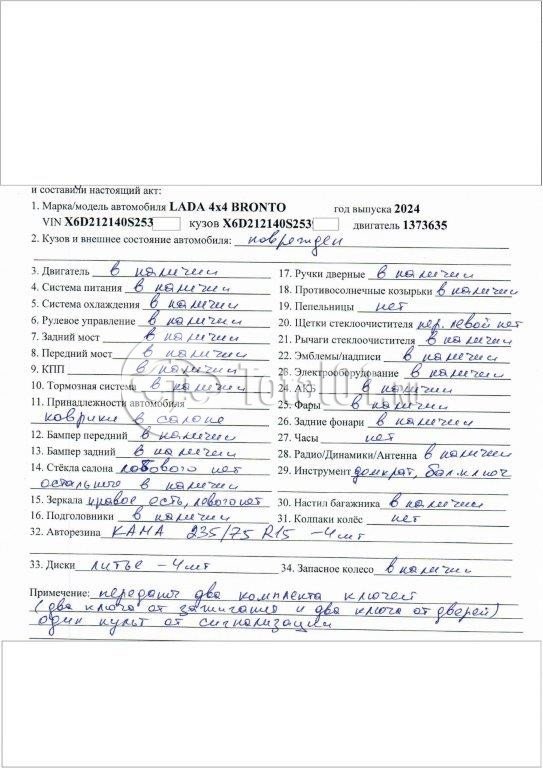 и составили настоящий акт:
1. Марка/модель автомобиля LADA 4x4 BRONTO год выпуска 2024
VIN X6D212140S253 кузов X6D212140S253 двигатель 1373635
2. Кузов и внешнее состояние автомобиля: поврежден
3. Двигатель в наличии
4. Система питания в наличии
5. Система охлаждения в наличии
6. Рулевое управление в наличии
7. Задний мост в наличии
8. Передний мост в наличии
9. КПП в наличии
10. Тормозная система в наличии
11. Принадлежности автомобиля
коврики в салоне
12. Бампер передний в наличии
13. Бампер задний в наличии
14. Стёкла салона лобового нет
остальное в наличии
15. Зеркала правое есть, левого нет
16. Подголовники в наличии
17. Ручки дверные в наличии
18. Противосолнечные козырьки в наличии
19. Пепельницы нет
20. Щетки стеклоочистителя пер. левой нет
21. Рычаги стеклоочистителя в наличии
22. Эмблемы/надписи в наличии
23. Электрооборудование в наличии
24. АКБ в наличии
25. Фары в наличии
26. Задние фонари в наличии
27. Часы нет
28. Радио/Динамики/Антенна в наличии
29. Инструмент домкрат, бал.ключ
30. Настил багажника в наличии
31. Колпаки колёс нет
32. Авторезина КАМА 235/75 R15 -4шт
33. Диски литье -4шт 34. Запасное колесо в наличии
Примечание: передают два комплекта ключей
(два ключа от зажигания и два ключа от дверей)
один пульт от сигнализации